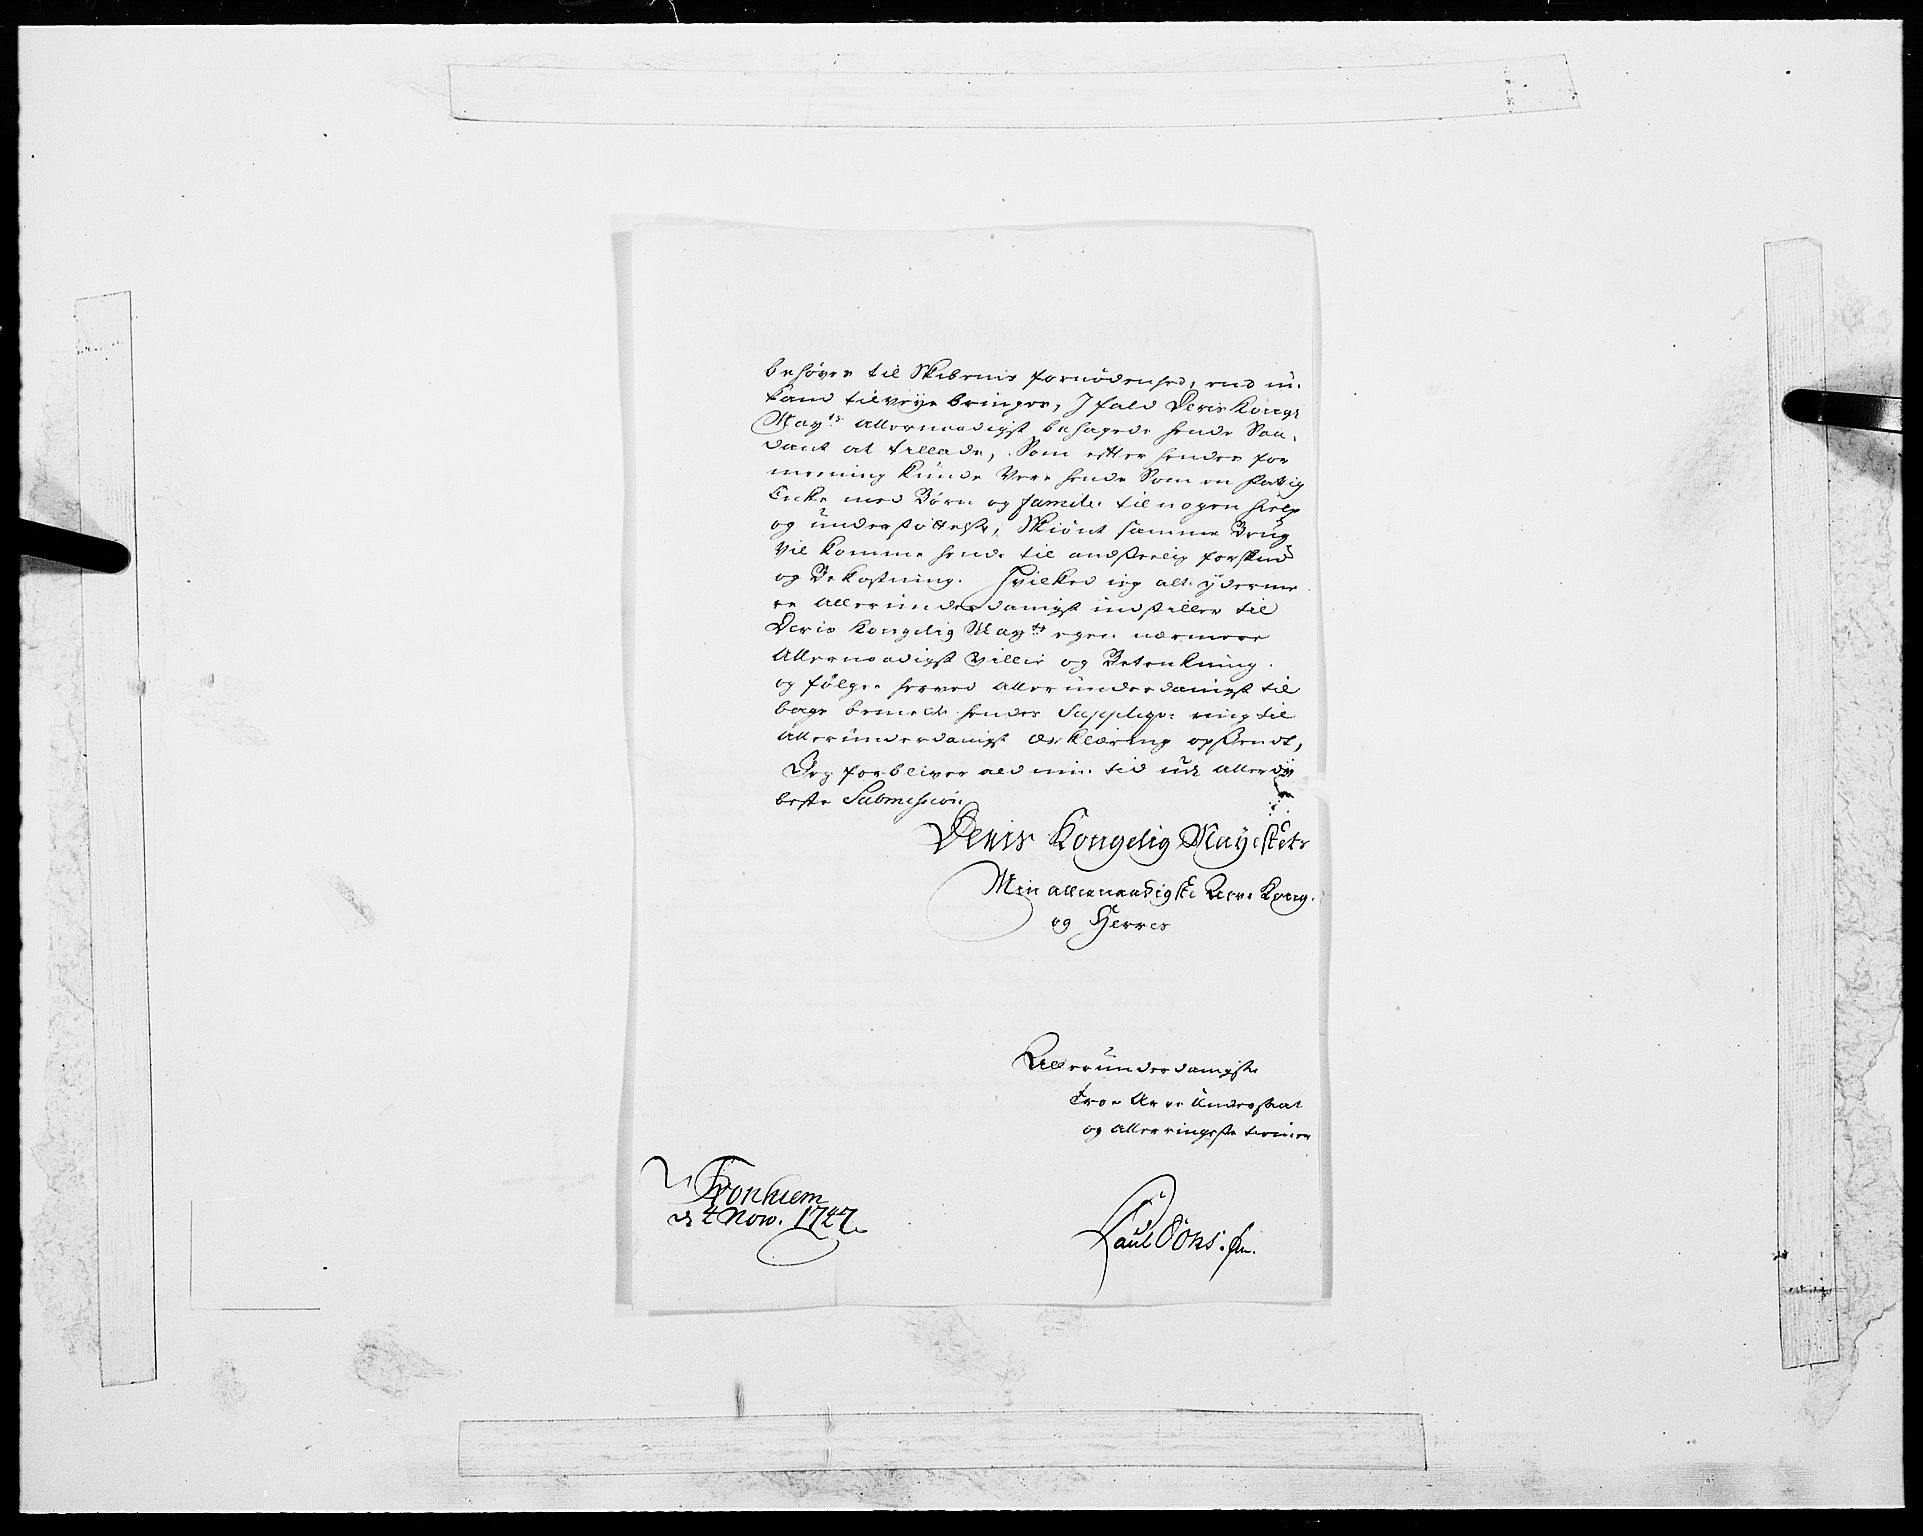 behøver til Skibenis fornødenhed, end ü.
kand tilveye bringes, J fald Deris Kongl
May.ts allernaadigst behagede hende Saa-
dant at tillade, Som efter hendes for
meening kunde Vere hende Som en fattig
Encke med Børn og familie til nogen hielp
og understøttelse, Skiønt samme Brug
vil komme hende til anseelig forskud
og Bekostning. Hvilked ieg alt yderme
re allerunderdanigst indstiller til
Deris Kongelig May.ts egen nærmere
Allernaadigst Villie og Betenkning.
og følger herved allerunderdanigst til
bage bemelte hendes Suppliqve mig til
allerunderdanigst erklæring opsendt,
Jeg forbliver ald min tid udi allerdy
beste Submission
Deris Kongelig Mayestets
Min allernaadigste Arve Kong.
og Herres
Allerunderdanigste
Troe Arve Undersaat
og allerringeste tiener
Tronhiem
d 4 Nov. 1727.
Paul Døns. Sn.